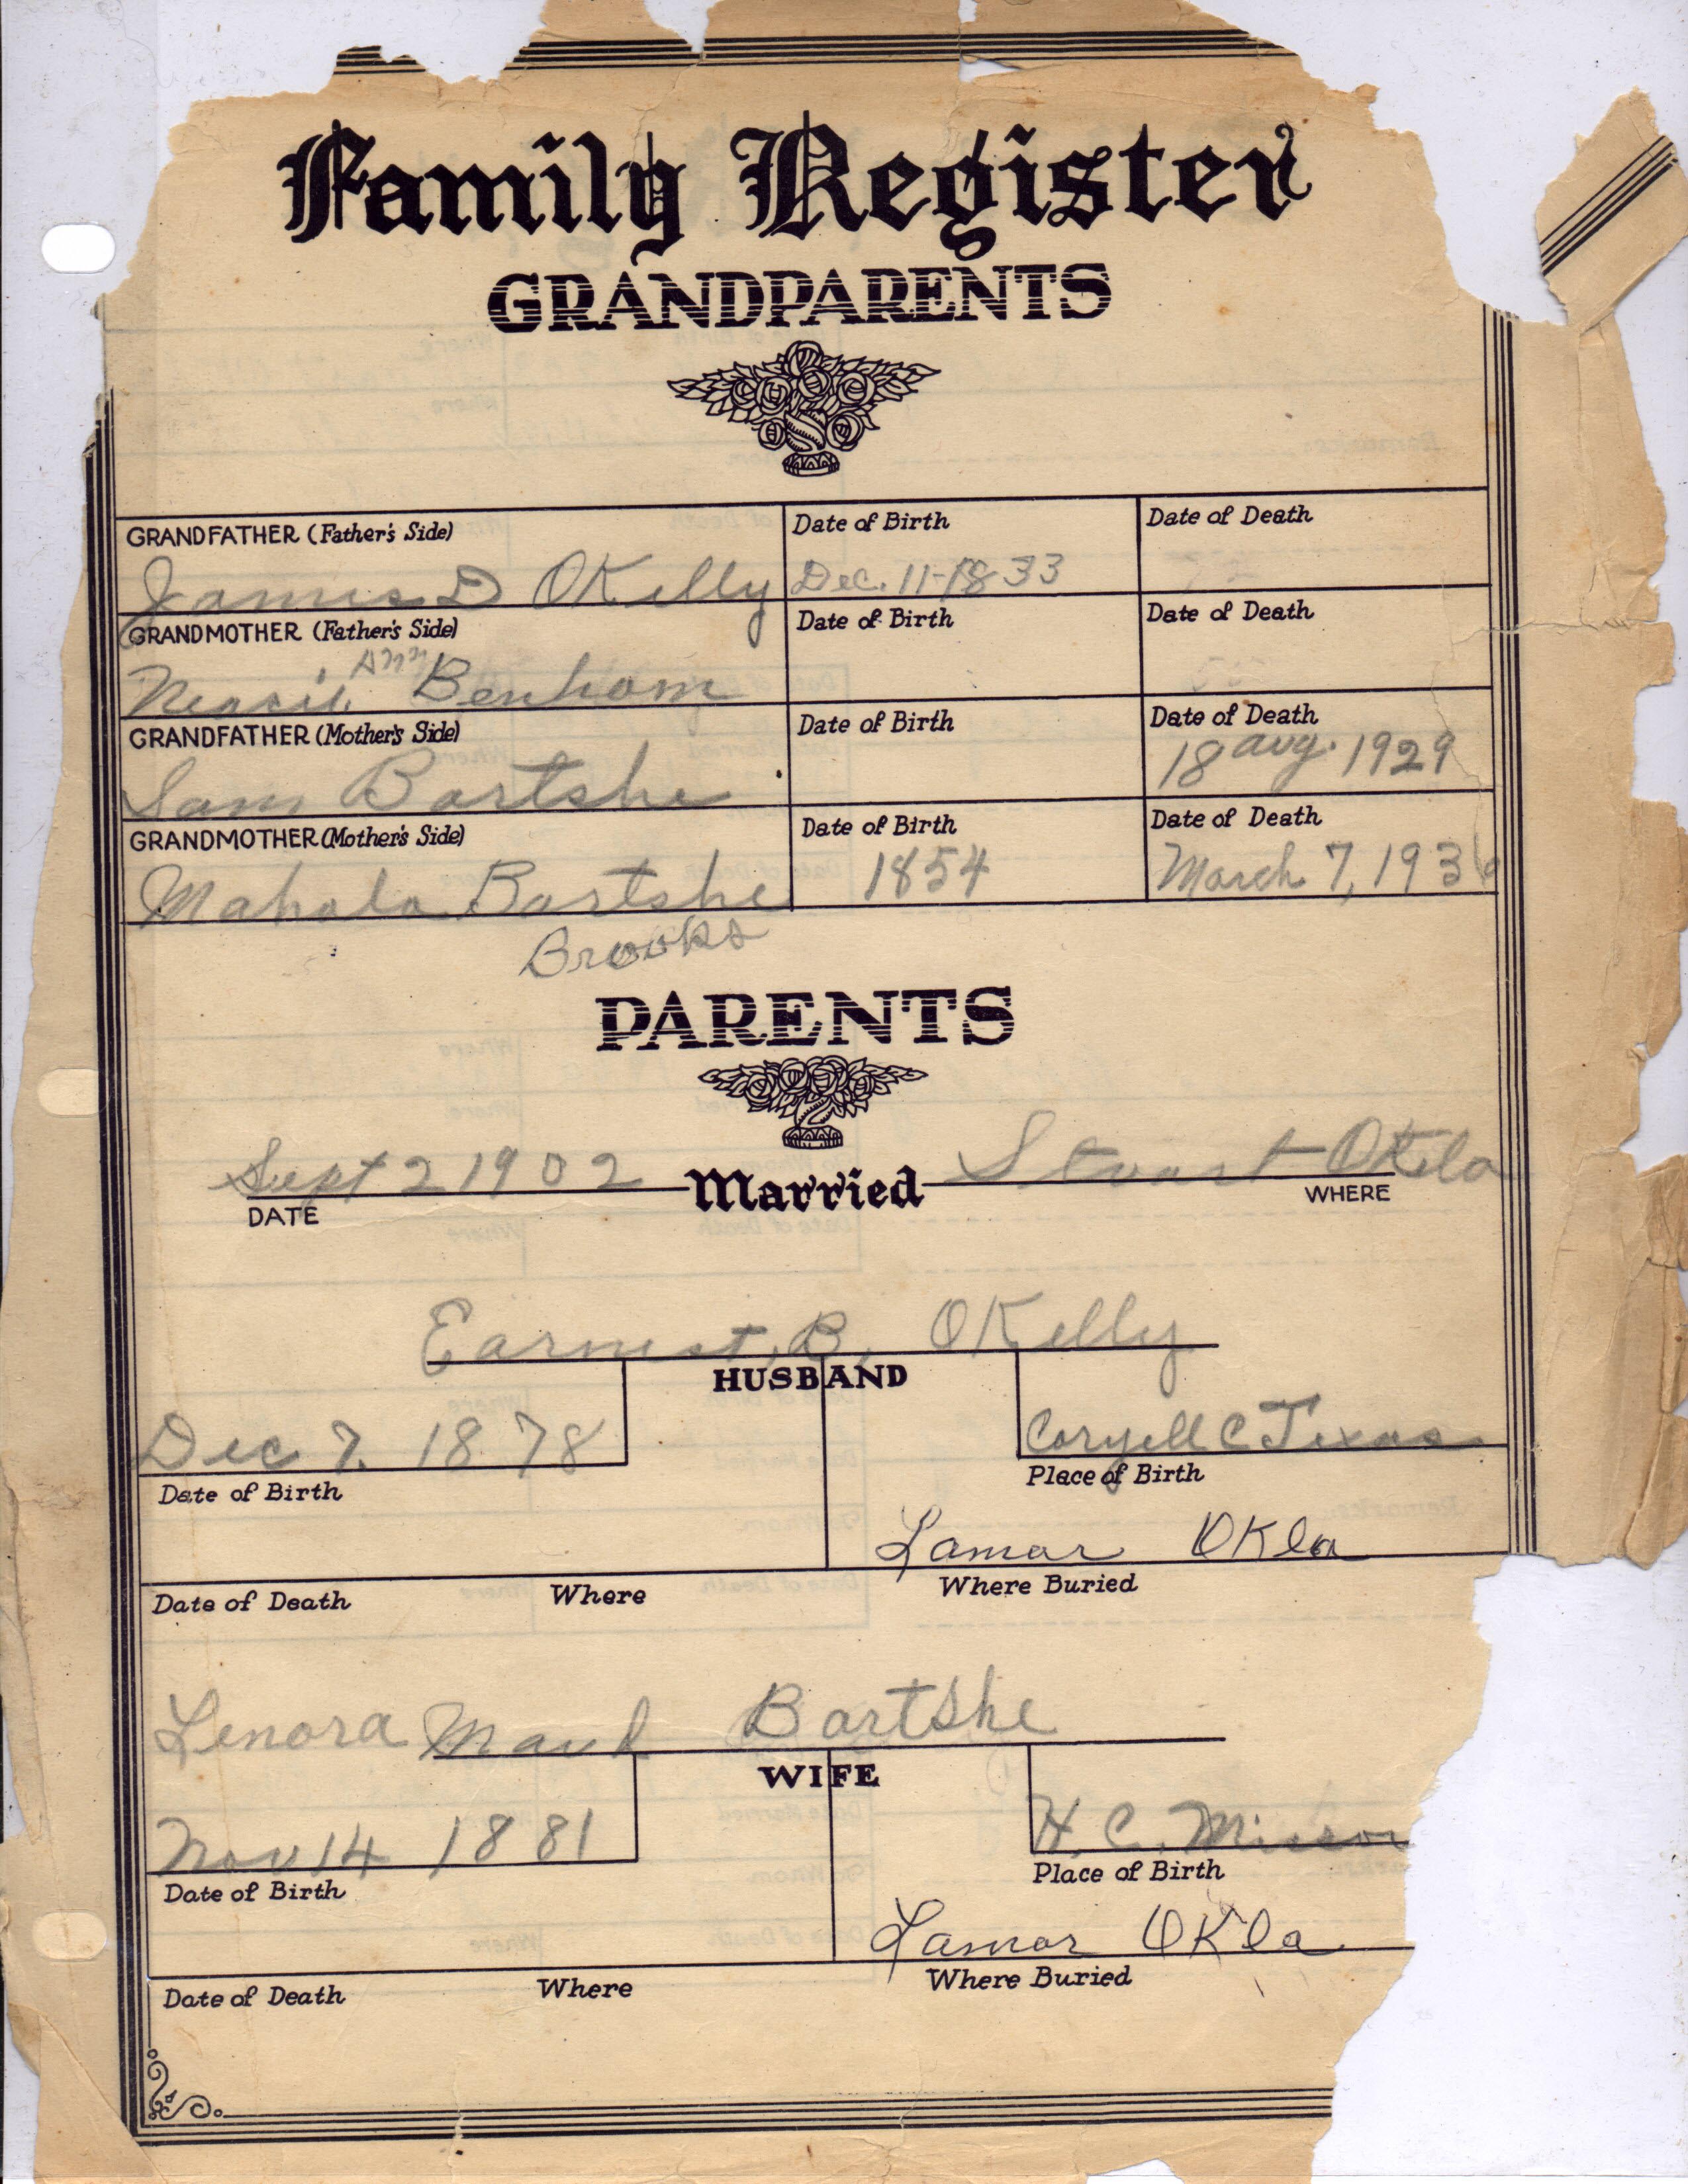 Family Register
GRANDPARENTS
GRANDFATHER (Father's Side) Date of Birth Date of Death
James D OKelly Dec. 11-1833
GRANDMOTHER (Father's Side) Date of Birth Date of Death
Ann
Benham
GRANDFATHER (Mother's Side) Date of Birth Date of Death
Sam Bartshe 18 aug. 1929
GRANDMOTHER (Mother's Side) Date of Birth Date of Death
Mahala Bartshe 1854 March 7, 193
Brooks
PARENTS
Sept 2 1902 Married Stuart Okla
DATE WHERE
Earnest, B, OKelly
HUSBAND
Dec 7. 1878 Coryell C Texas
Date of Birth Place of Birth
Lamar OKla
Date of Death Where Where Buried
Lenora Maud Bartshe
WIFE
Nov 14 1881 H. C. Missou
Date of Birth Place of Birth
Lamar OKla
Date of Death Where Where Buried